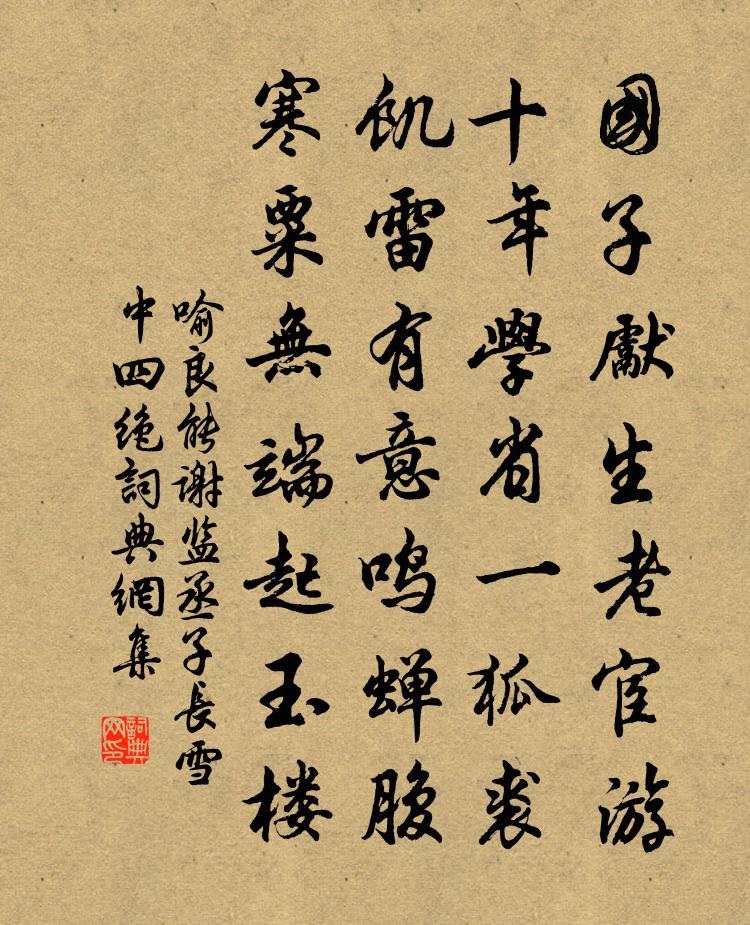 國子獻生老宦游
十年學省一狐裘
飢雷有意鸣蝉腹
寒粟無端起玉楼
喻良能谢监丞子長雪
中四绝詞典網集
詞典
网印